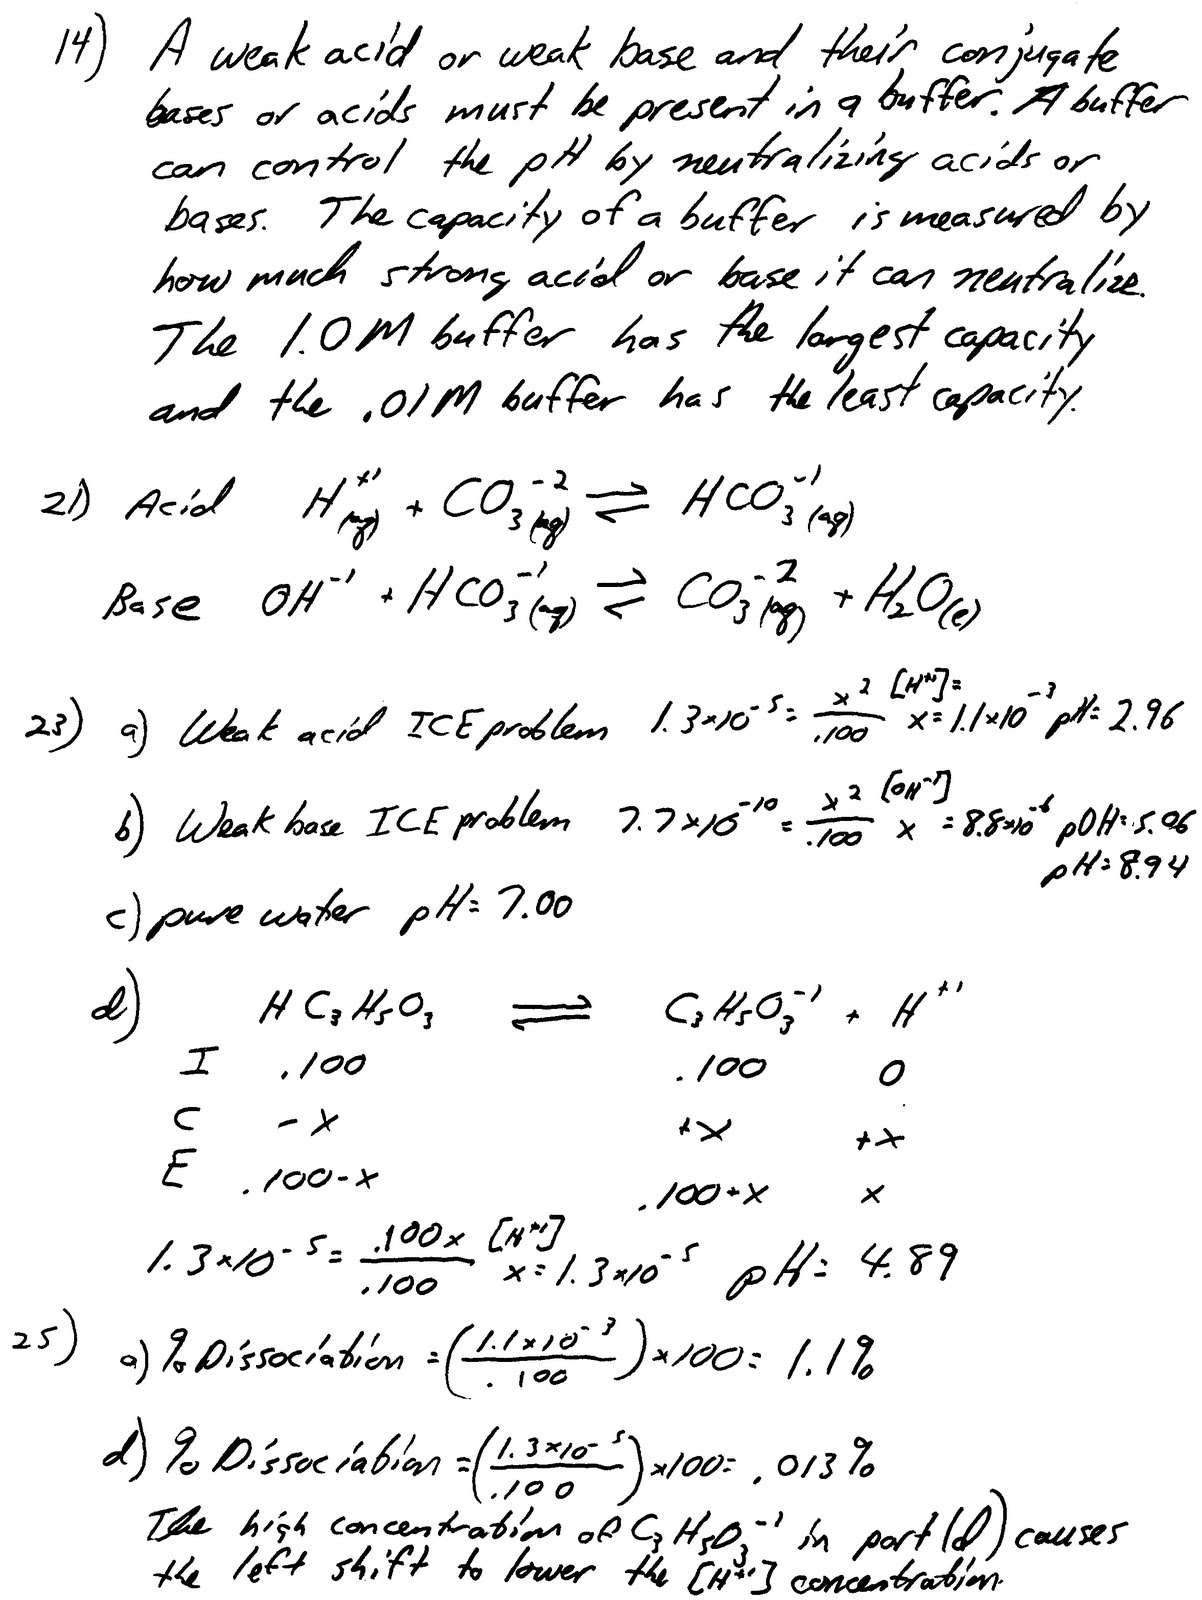 14) A weak acid or weak base and their conjugate
bases or acids must be present in a buffer. A buffer
can control the pH by neutralizing acids or
bases. The capacity of a buffer is measured by
how much strong acid or base it can neutralize.
The 1.0M buffer has the largest capacity
and the .01M buffer has the least capacity.
21) Acid H⁺¹(aq) + CO₃⁻²(aq) ⇌ HCO₃⁻¹(aq)
Base OH⁻¹ + HCO₃⁻¹(aq) ⇌ CO₃⁻²(aq) + H₂O(l)
23) a) Weak acid ICE problem 1.3×10⁻⁵ = x²/.100 [H⁺¹]= x = 1.1×10⁻³ pH= 2.96
b) Weak base ICE problem 7.7×10⁻¹⁰ = x²/.100 [OH⁻¹] x = 8.8×10⁻⁶ pOH=5.06
pH=8.94
c) pure water pH= 7.00
d) HC₃H₅O₃ ⇌ C₃H₅O₃⁻¹ + H⁺¹
I .100 .100 0
C -x +x +x
E .100-x .100+x x
1.3×10⁻⁵ = .100x/.100 [H⁺¹] x = 1.3×10⁻⁵ pH= 4.89
25) a) % Dissociation = (1.1×10⁻³/.100)×100= 1.1%
d) % Dissociation = (1.3×10⁻⁵/.100)×100= .013%
The high concentration of C₃H₅O₃⁻¹ in part (d) causes
the left shift to lower the [H⁺¹] concentration.